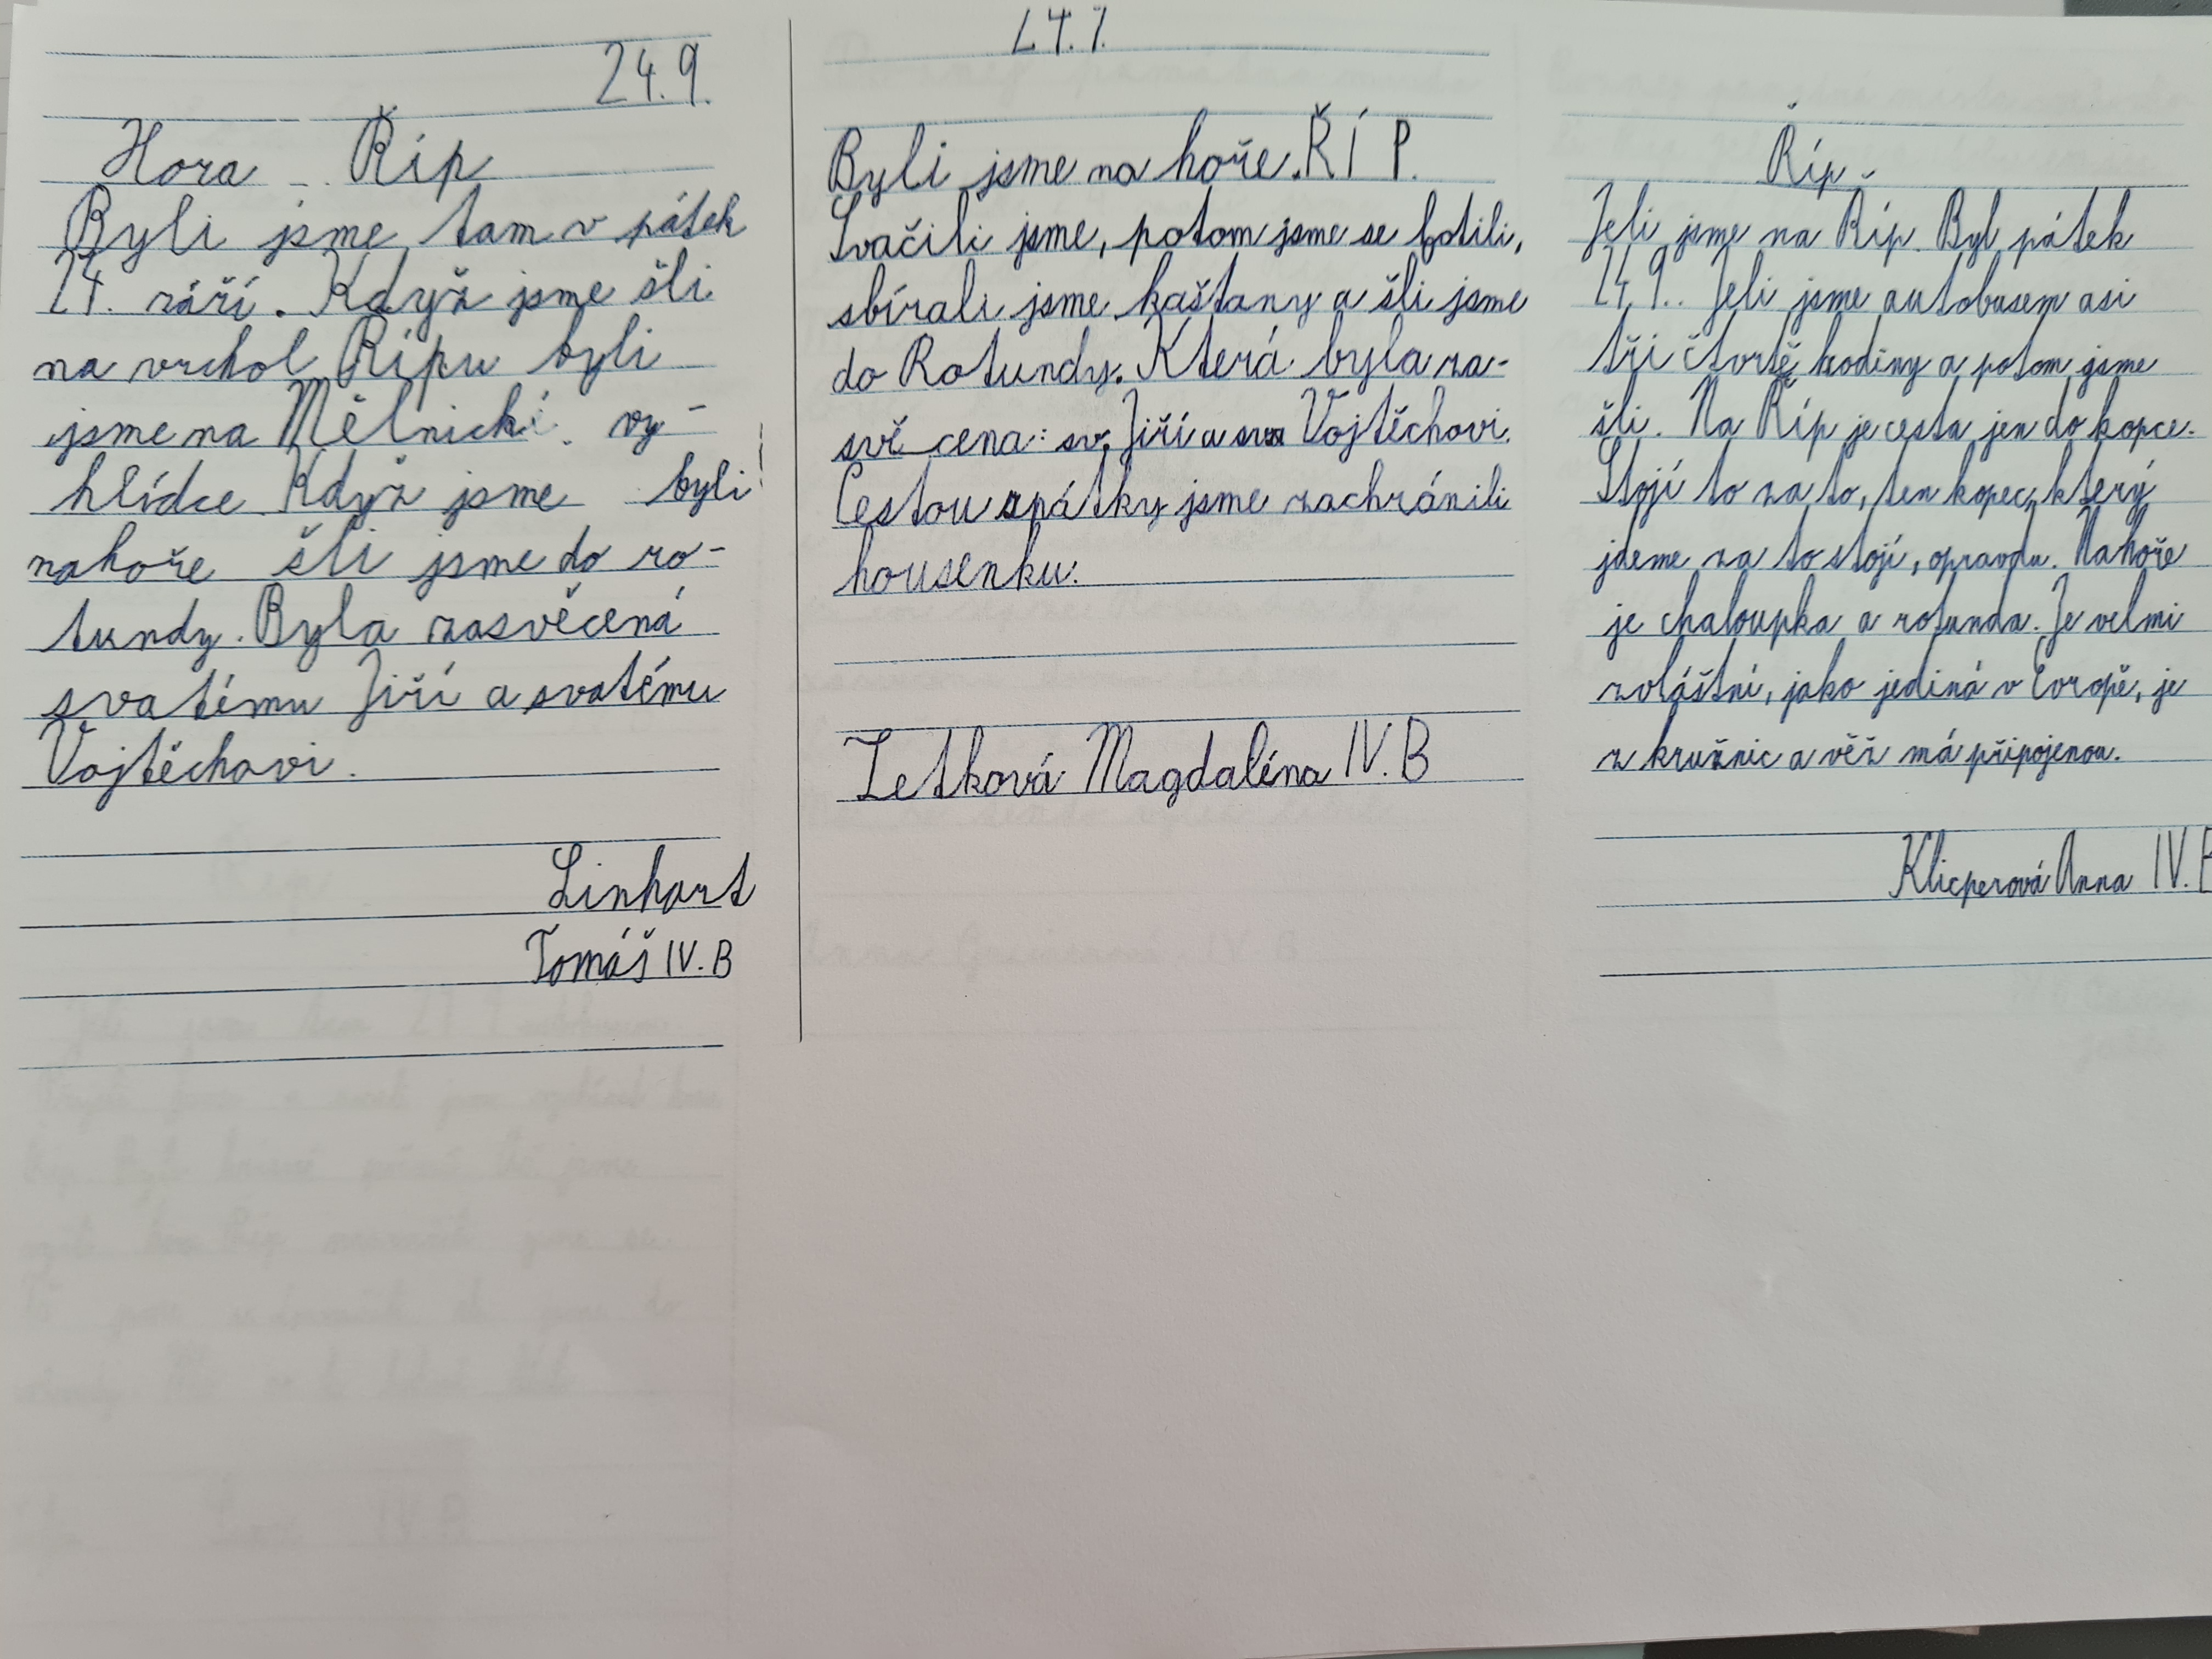 24.9.
Hora Říp
Byli jsme tam v pátek
24. září. Když jsme šli
na vrchol Řípu byli
jsme na Mělnické vy-
hlídce Když jsme byli
nahoře šli jsme do ro-
tundy. Byla zasvěcená
svatému Jiří a svatému
Vojtěchovi.
Linhart
Tomáš IV.B
Byli jsme na hoře.ŘÍP.
Svačili jsme, potom jsme se fotili,
sbírali jsme kaštany a šli jsme
do Rotundy. Která byla za-
svě cena: sv. Jiří a Vojtěchovi.
Cestou zpátky jsme zachránili
housenku.
Letková Magdaléna IV.B
Říp
Jeli jsme na Říp. Byl pátek
24.9.. Jeli jsme autobusem asi
tři čtvrtě hodiny a potom jsme
šli. Na Říp je cesta jen do kopce.
Stojí to za to, ten kopec, který
jdeme za to stojí, opravdu. Nahoře
je chaloupka a rotunda. Je velmi
zvláštní, jako jediná v Evropě, je
z kružnic a věž má připojenou.
Klicperová Anna IV.B